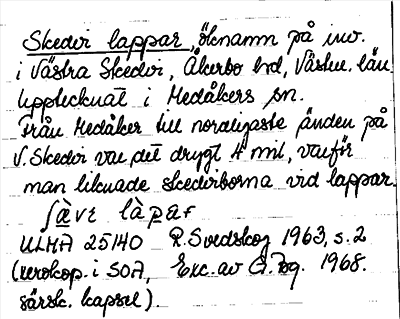 Skedvi lappar, öknamn på inv.
i Västra Skedvi, Åkerbo hd, Västm. län
upptecknat i Medåkers sn.
Från Medåker till nordligaste änden på
V. Skedvi var det drygt 4 mil, varför
man liknade skedviborna vid lappar.
ʃàvɛ làpar
ULMA 25140 R. Svedskog 1963, s. 2
(xerokop. i SOA, Exc. av
1968.
särsk. kapsel).